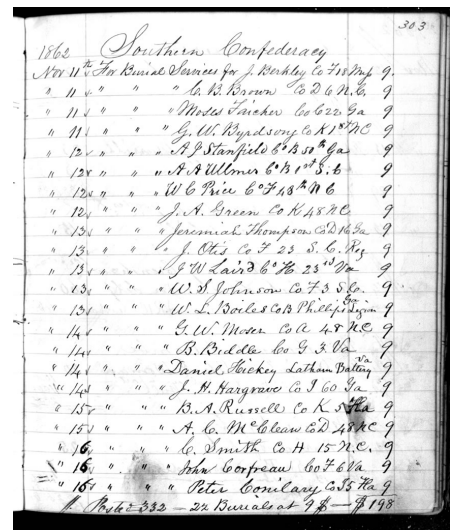 303
1862 Southern Confederacy
Nov 11th For Burial Services for J. Berkley Co F 18 Mip 9.
" 11 " " " C. B. Brown Co D 6 N. C. 9
" 11 " " " Moses Co C 22 Ga 9
" 11 " " " G. W. Byrdsong Co K 1st NC 9
" 12 " " " A J Stanfield Co B 50th Ga 9
" 12 " " " A A Ulmer Co B 1st S. C 9
" 12 " " " W C Price Co F 48th N C 9
" 12 " " " J. A. Green Co K 48 NC 9
" 13 " " " Jeremiah Thompson Co D 16 Ga 9
" 13 " " " J. Otis Co F 23 S. C. Reg 9
" 13 " " " J W Laird Co H. 23rd Va 9
" 13 " " " W. S. Johnson Co F 3 S Co. 9
" 13 " " " W. L. Boiles Co B Phillips Ga Legion 9
" 14 " " " G. W. Moser Co A 48 NC 9
" 14 " " " B. Biddle Co G 3 Va 9
" 14 " " " Daniel Hickey Latham Battery Va 9
" 14 " " " J. H. Hargrave Co I 60 Ga 9
" 15 " " " B. A. Russell Co K 5 Fla 9
" 15 " " " A. C. McClean Co D 48 NC 9
" 16 " " " C. Smith Co H 15 N. C. 9
" 16 " " " John Corfreau Co F 6 Va 9
" 16 " " " Peter Conilary Co I 5 Fla 9
332 — 22 Burials at 9 $ — $ 198